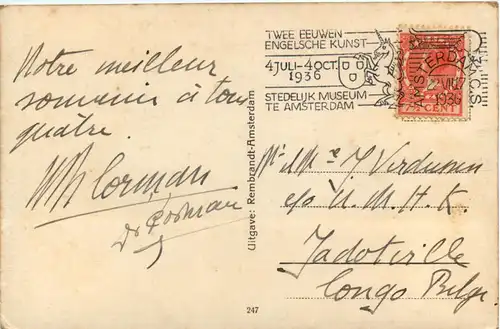 Notre meilleur
souvenir à tous
quatre.
Uitgave: Rembrandt-Amsterdam
247
TWEE EEUWEN
ENGELSCHE KUNST
4 JULI-4 OCT.
1936
STEDELIJK MUSEUM
TE AMSTERDAM
AMSTERDAM C.S.
1936
7½ CENT
Verdussen
c/o U. M. H. K.
Jadotville
Congo Belge